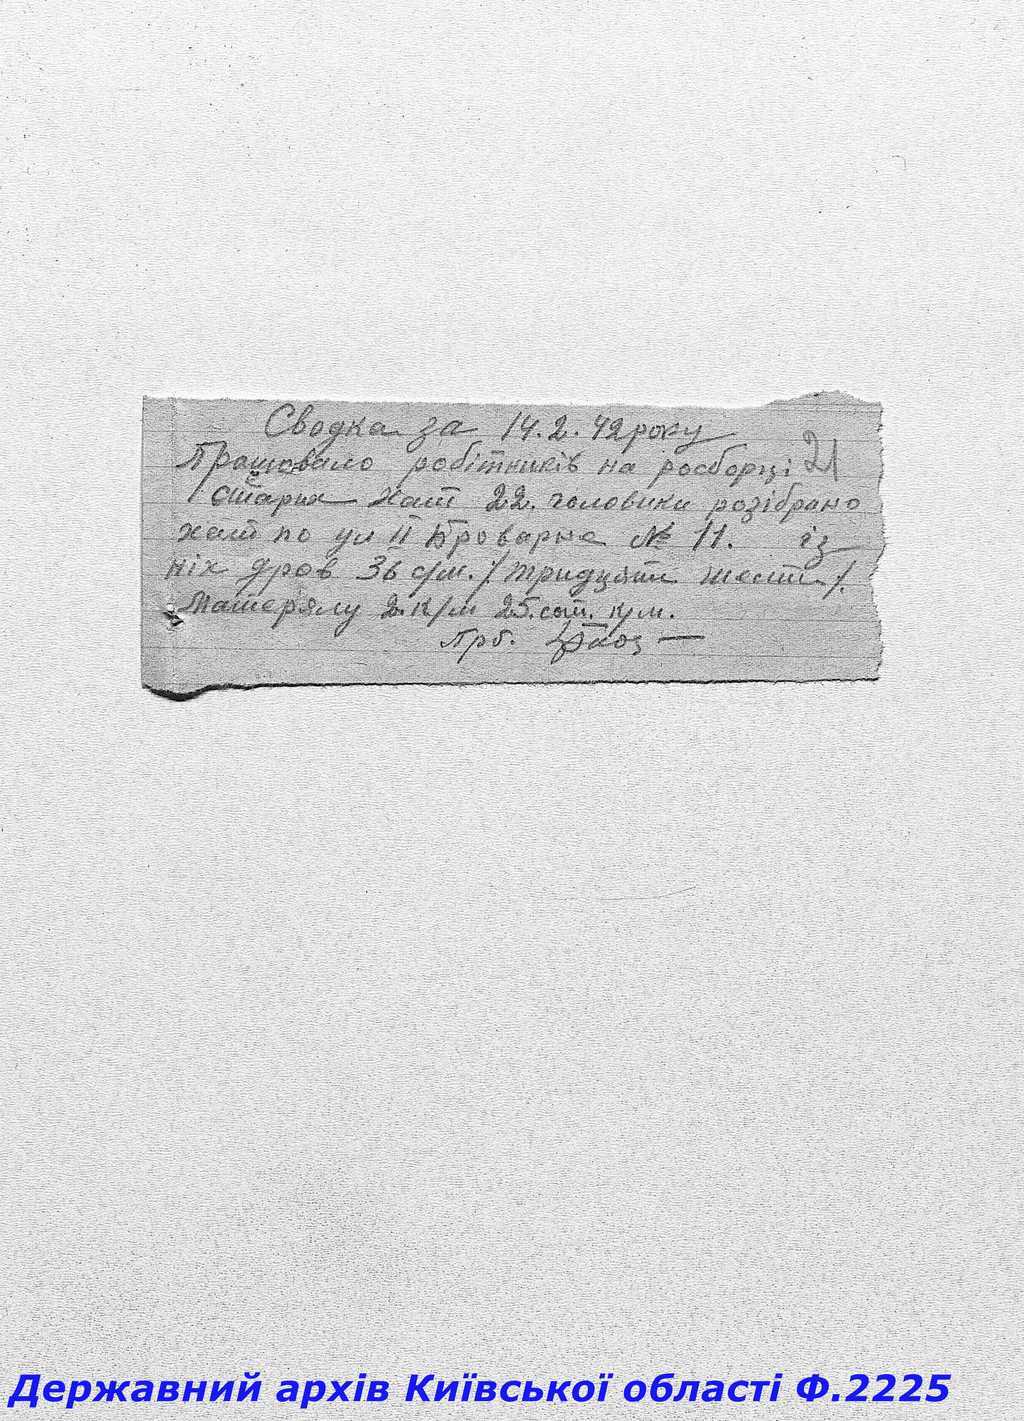 Сводка за 14.2.42 року
Працювало робітників на розборці 21
старих хат 22. чоловіки розібрано
хат по ул II Броварна № 11. із
ніх дров 36 с/м. / тридцяти шести /.
Матерялу 2 к/м 25. сот. к/м.
Прб.
Державний архів Київської області Ф.2225